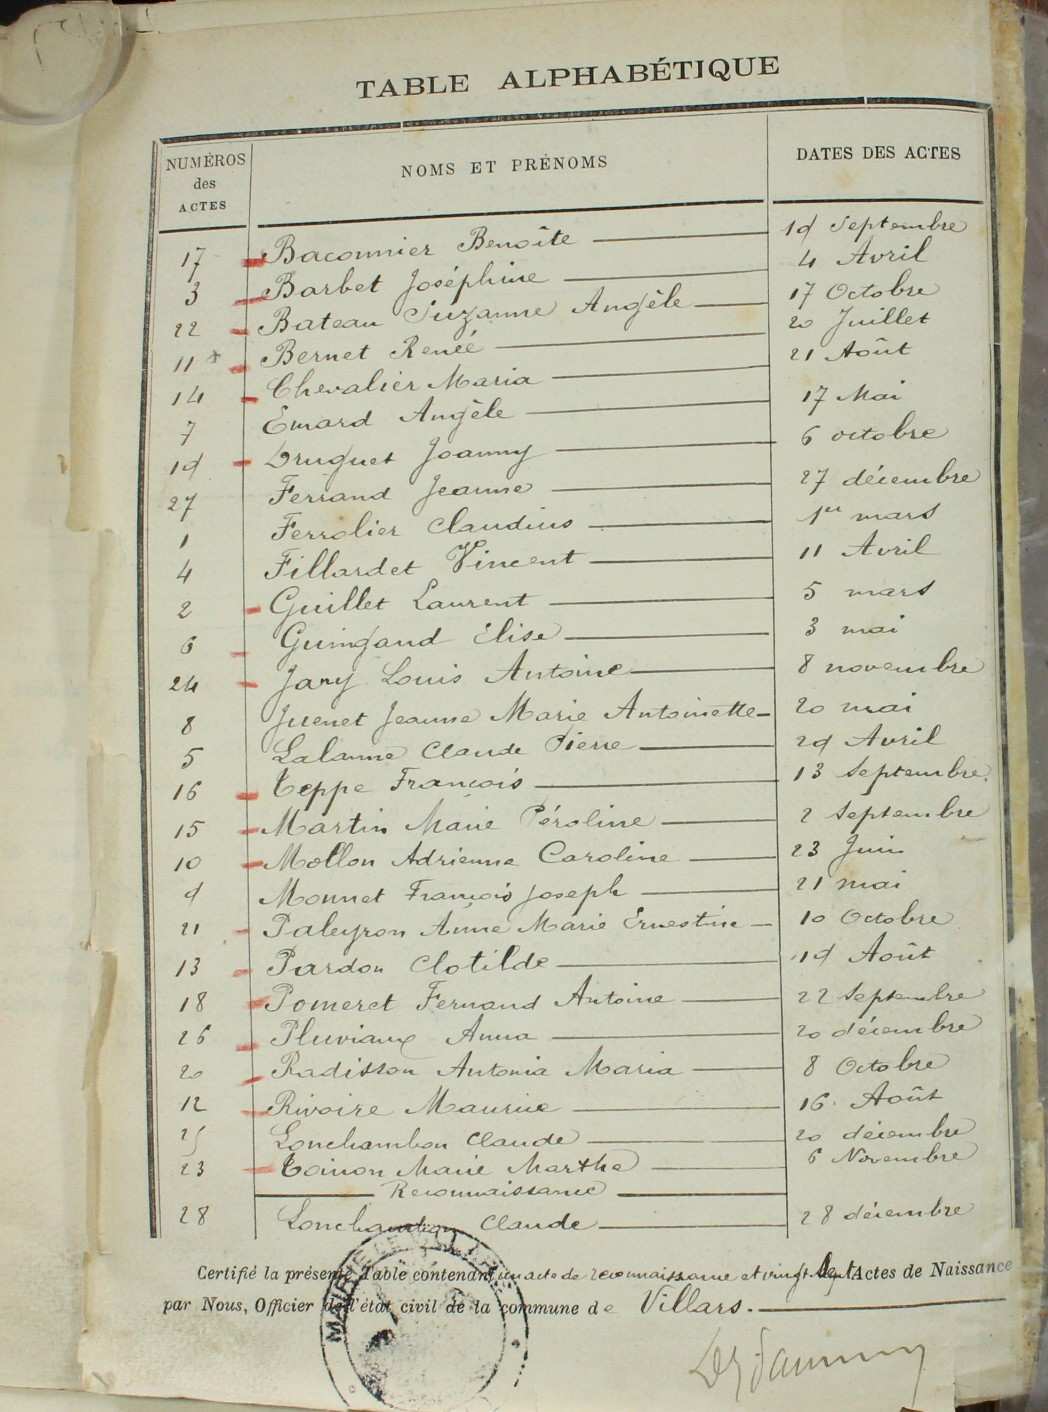 TABLE ALPHABÉTIQUE
NUMÉROS des ACTES NOMS ET PRÉNOMS DATES DES ACTES
17 Baconnier Benoîte 19 Septembre
3 Barbet Joséphine 4 Avril
22 Bateau Suzanne Angèle 17 Octobre
11 Bernet Renée 20 Juillet
14 Chevalier Maria 21 Août
7 Emard Angèle 17 Mai
19 Druguet Joanny 6 octobre
27 Ferrand Jeanne 27 décembre
1 Ferrolier Claudius 1er mars
4 Fillardet Vincent 11 Avril
2 Guillet Laurent 5 mars
6 Guingand Elise 3 mai
24 Jany Louis Antoine 8 novembre
8 Juenet Jeanne Marie Antoinette 20 mai
5 Lalanne Claude Pierre 29 Avril
16 Teppe François 13 Septembre
15 Martin Marie Péroline 2 Septembre
10 Mollon Adrienne Caroline 23 Juin
9 Monnet François Joseph 21 mai
21 Paleyron Anne Marie Ernestine 10 Octobre
13 Pardon Clotilde 19 Août
18 Pomeret Fernand Antoine 22 Septembre
26 Pluviaux Anna 20 décembre
20 Radisson Antonia Maria 8 Octobre
12 Rivoire Maurice 16 Août
25 Lonchambon Claude 20 décembre
23 Toinon Marie Marthe 6 Novembre
Reconnaissance
28 Lonchambon Claude 28 décembre
Certifié la présente Table contenant un acte de reconnaissance et vingt-sept Actes de Naissance
par Nous, Officier de l'état civil de la commune de Villars.
MAIRIE DE VILLARS